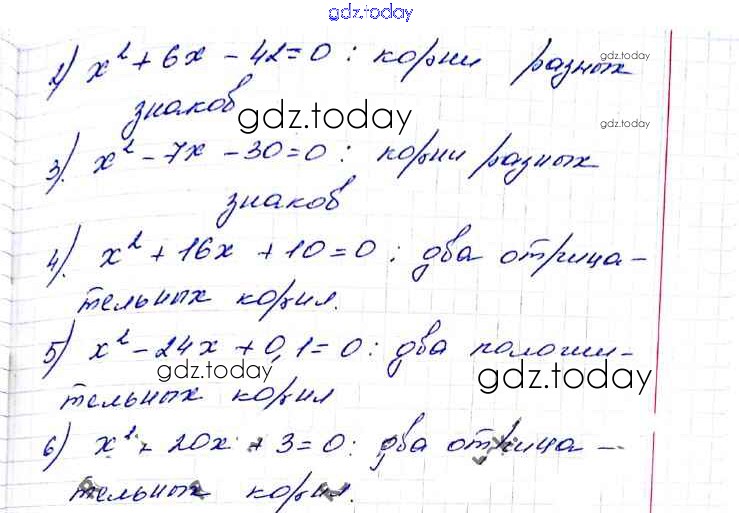 gdz.today
2) x² + 6x - 42 = 0 : корни разных
gdz.today
знаков
gdz.today
gdz.today
3). x² - 7x - 30 = 0 : корни разных
знаков
4). x² + 16x + 10 = 0 : два отрица-
тельных корня.
5) x² - 24x + 0,1 = 0 : два положи-
gdz.today
gdz.today
тельных корня
6) x² - 20x + 3 = 0 : два отрица-
тельных корня.